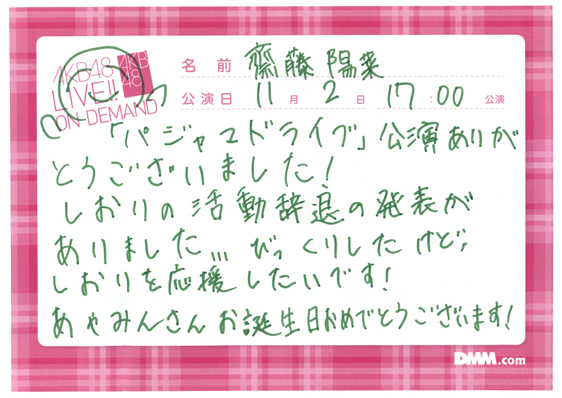 AKB48
LIVE!!
ON-DEMAND
AKB
48
名前 齋藤陽菜
公演日 11月2日 17:00 公演
「パジャマドライブ」公演ありが
とうございました！
しおりの活動辞退の発表が
ありました… びっくりしたけど、
しおりを応援したいです！
あやみんさんお誕生日おめでとうございます！
DMM.com